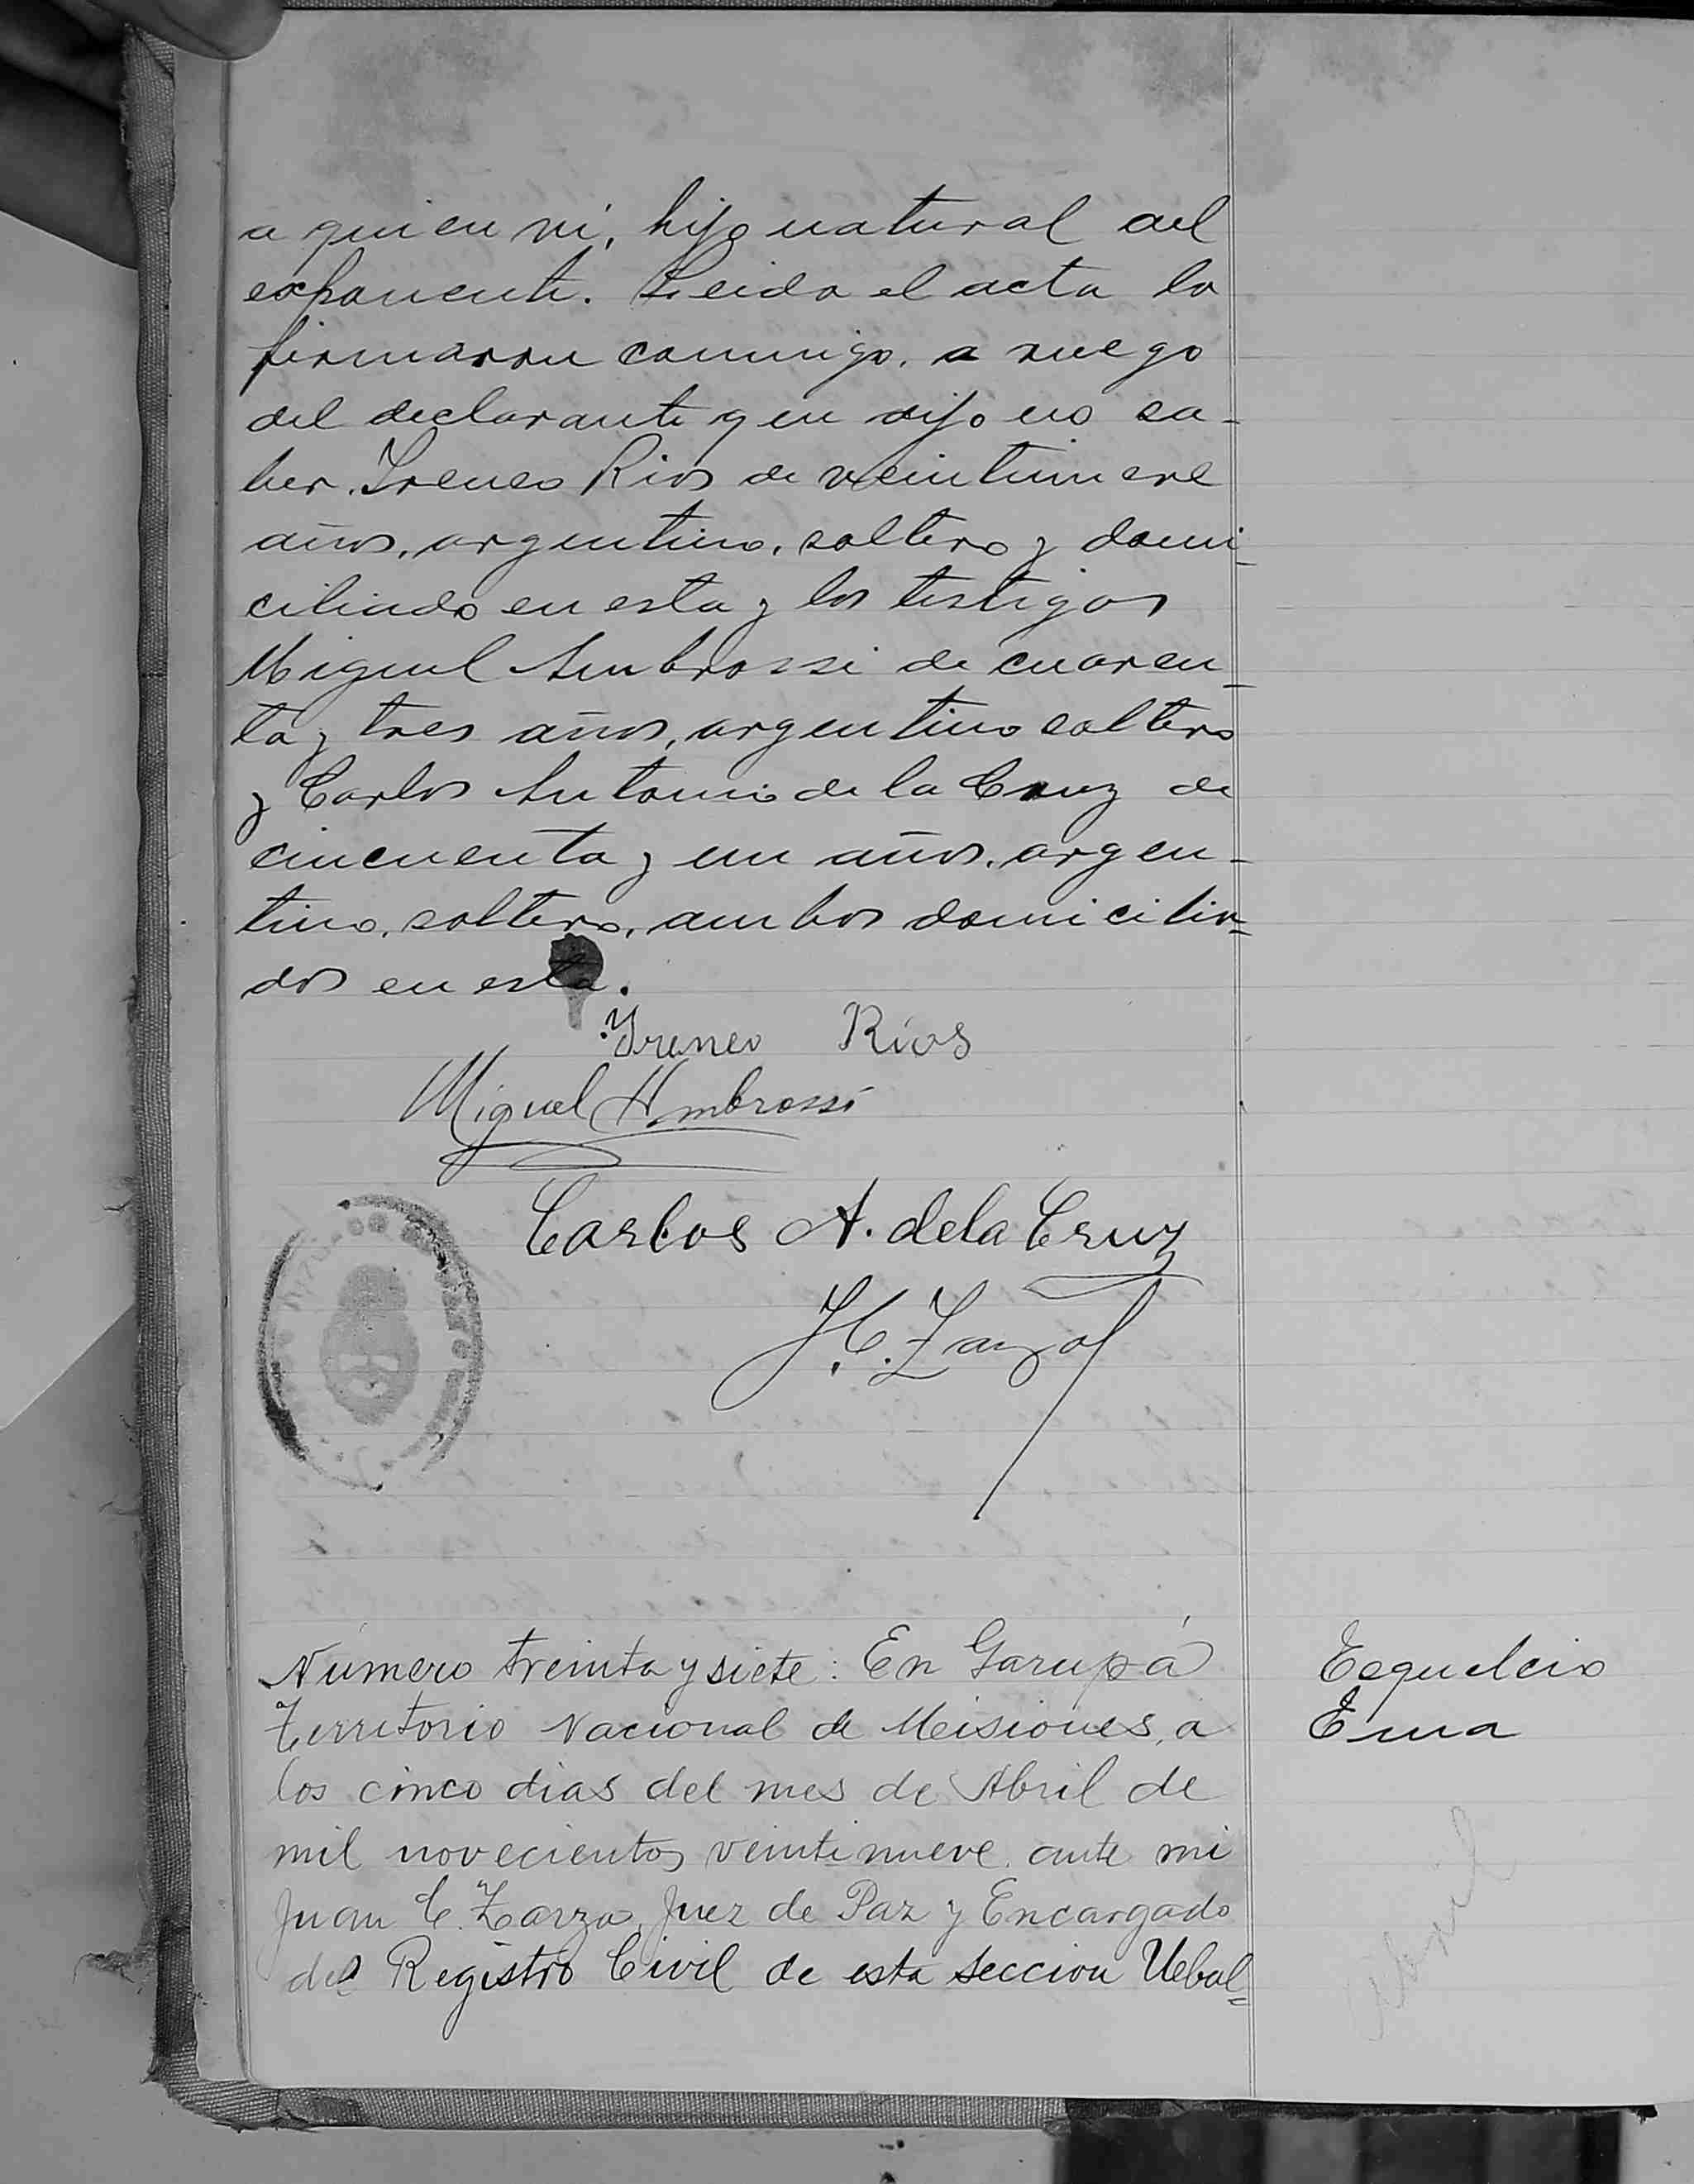 a quien vi, hijo natural del
exponente. Leida el acta la
firmaron conmigo, a ruego
del declarante que dijo no sa-
ber, Ireneo Rios de veintinueve
años, argentino, soltero y domi-
ciliado en esta y los testigos
Miguel Ambrossi de cuaren-
ta y tres años, argentino soltero
y Carlos Antonio de la Cruz de
cincuenta y un años, argen-
tino, soltero, ambos domicilia-
dos en esta.
Ireneo Ríos
Miguel Ambrossi
Carlos A. de la Cruz
J. C. Zarza
Número treinta y siete: En Garupá
Territorio Nacional de Misiones, a
los cinco dias del mes de Abril de
mil novecientos veintinueve, ante mi
Juan C. Zarza, Juez de Paz y Encargado
del Registro Civil de esta seccion Uebal=
Ema
Abril